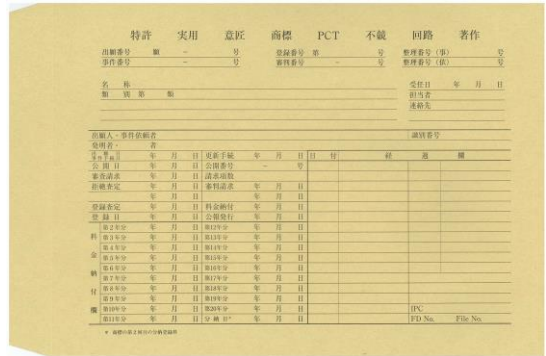 特許 実用 意匠 商標 PCT 不競 回路 著作
出願番号 願 － 号 登録番号 第 号 整理番号（事） 号
事件番号 － 号 審判番号 － 号 整理番号（依） 号
名 称 受任日 年 月 日
類 別 第 類 担当者
連絡先
出願人・事件依頼者 識別番号
発明者・ 者
年 月 日 更新手続 年 月 日 日 付 経 過 欄
公 開 日 年 月 日 公開番号 － 号
審査請求 年 月 日 請求項数
拒絶査定 年 月 日 審判請求 年 月 日
年 月 日 年 月 日
登録査定 年 月 日 料金納付 年 月 日
登 録 日 年 月 日 公報発行 年 月 日
料金納付欄
第2年分 年 月 日 第12年分 年 月 日
第3年分 年 月 日 第13年分 年 月 日
第4年分 年 月 日 第14年分 年 月 日
第5年分 年 月 日 第15年分 年 月 日
第6年分 年 月 日 第16年分 年 月 日
第7年分 年 月 日 第17年分 年 月 日
第8年分 年 月 日 第18年分 年 月 日
第9年分 年 月 日 第19年分 年 月 日
第10年分 年 月 日 第20年分 年 月 日 IPC
第11年分 年 月 日 分 納 日* 年 月 日 FD No. File No.
* 商標の第2回目の分納登録料